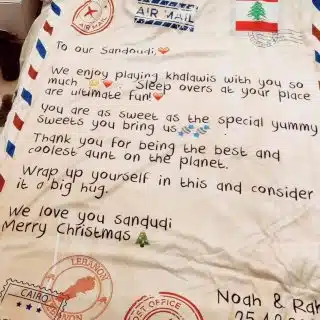 AIR MAIL
To our Sandoudi,❤️
We enjoy playing khalawis with you so
much 😘❤️. Sleep overs at your place
are ultimate fun!❤️
You are as sweet as the special yummy
sweets you bring us🍬🍬
Thank you for being the best and
coolest aunt on the planet.
Wrap up yourself in this and consider
it a big hug.
We love you sandudi
Merry Christmas🎄
Noah &
LEBANON
CAIRO
POST OFFICE